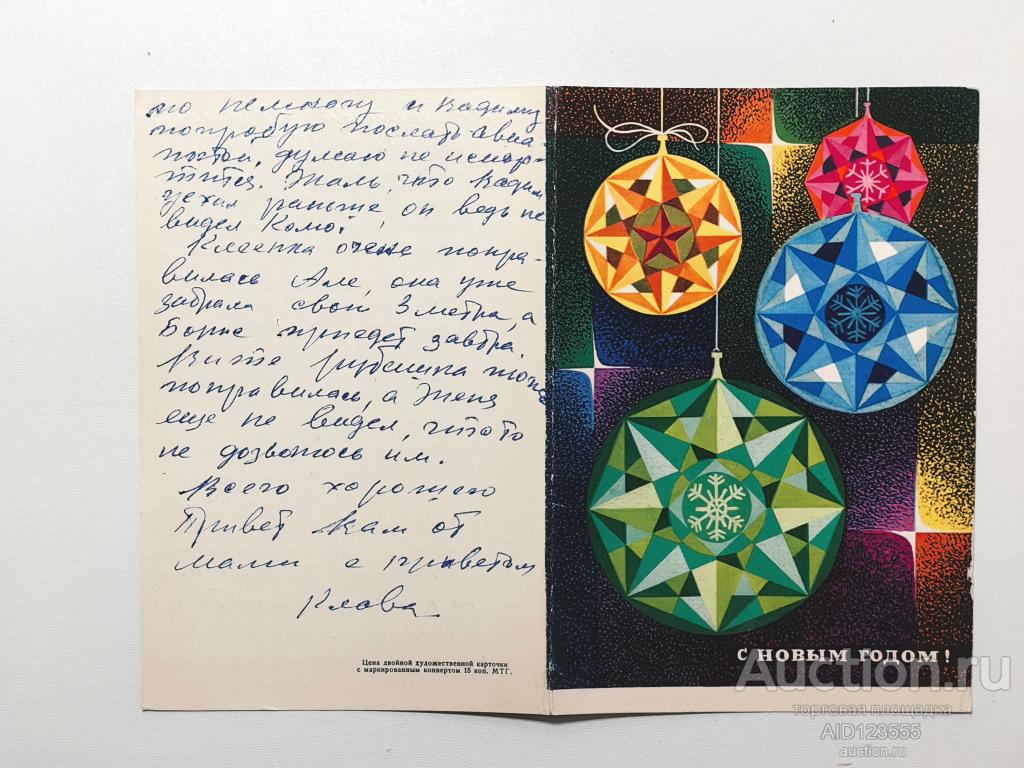 по немногу и Вадиму
попробую послать авиа-
почтой, думаю не испор-
тится. Жаль, что Вадим
уехал раньше, он ведь не
видел Колю.
Клеенка очень понра-
вилась Але, она уже
забрала свои 3 метра, а
Борис приедет завтра.
Вите рубашка тоже
понравилась, а Женя
еще не видел, что то
не дозвонюсь им.
Всего хорошего
Привет Вам от
мамы с приветом
Клава
Цена двойной художественной карточки
с маркированным конвертом 15 коп. МТГ.
С НОВЫМ ГОДОМ!
Auction.ru
торговая площадка
AID123555
auction.ru